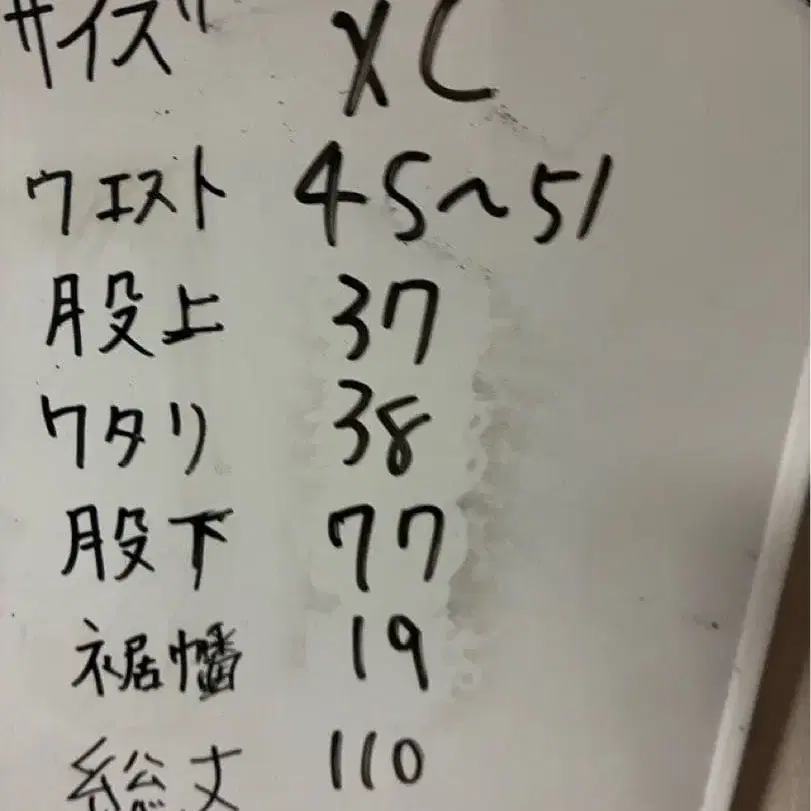 サイズ XL
ウエスト 45〜51
股上 37
ワタリ 38
股下 77
裾幅 19
総丈 110